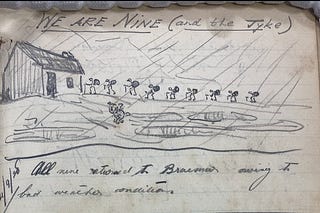 WE ARE NINE (and the Tyke)
All nine returned to Braemar owing to
bad weather conditions